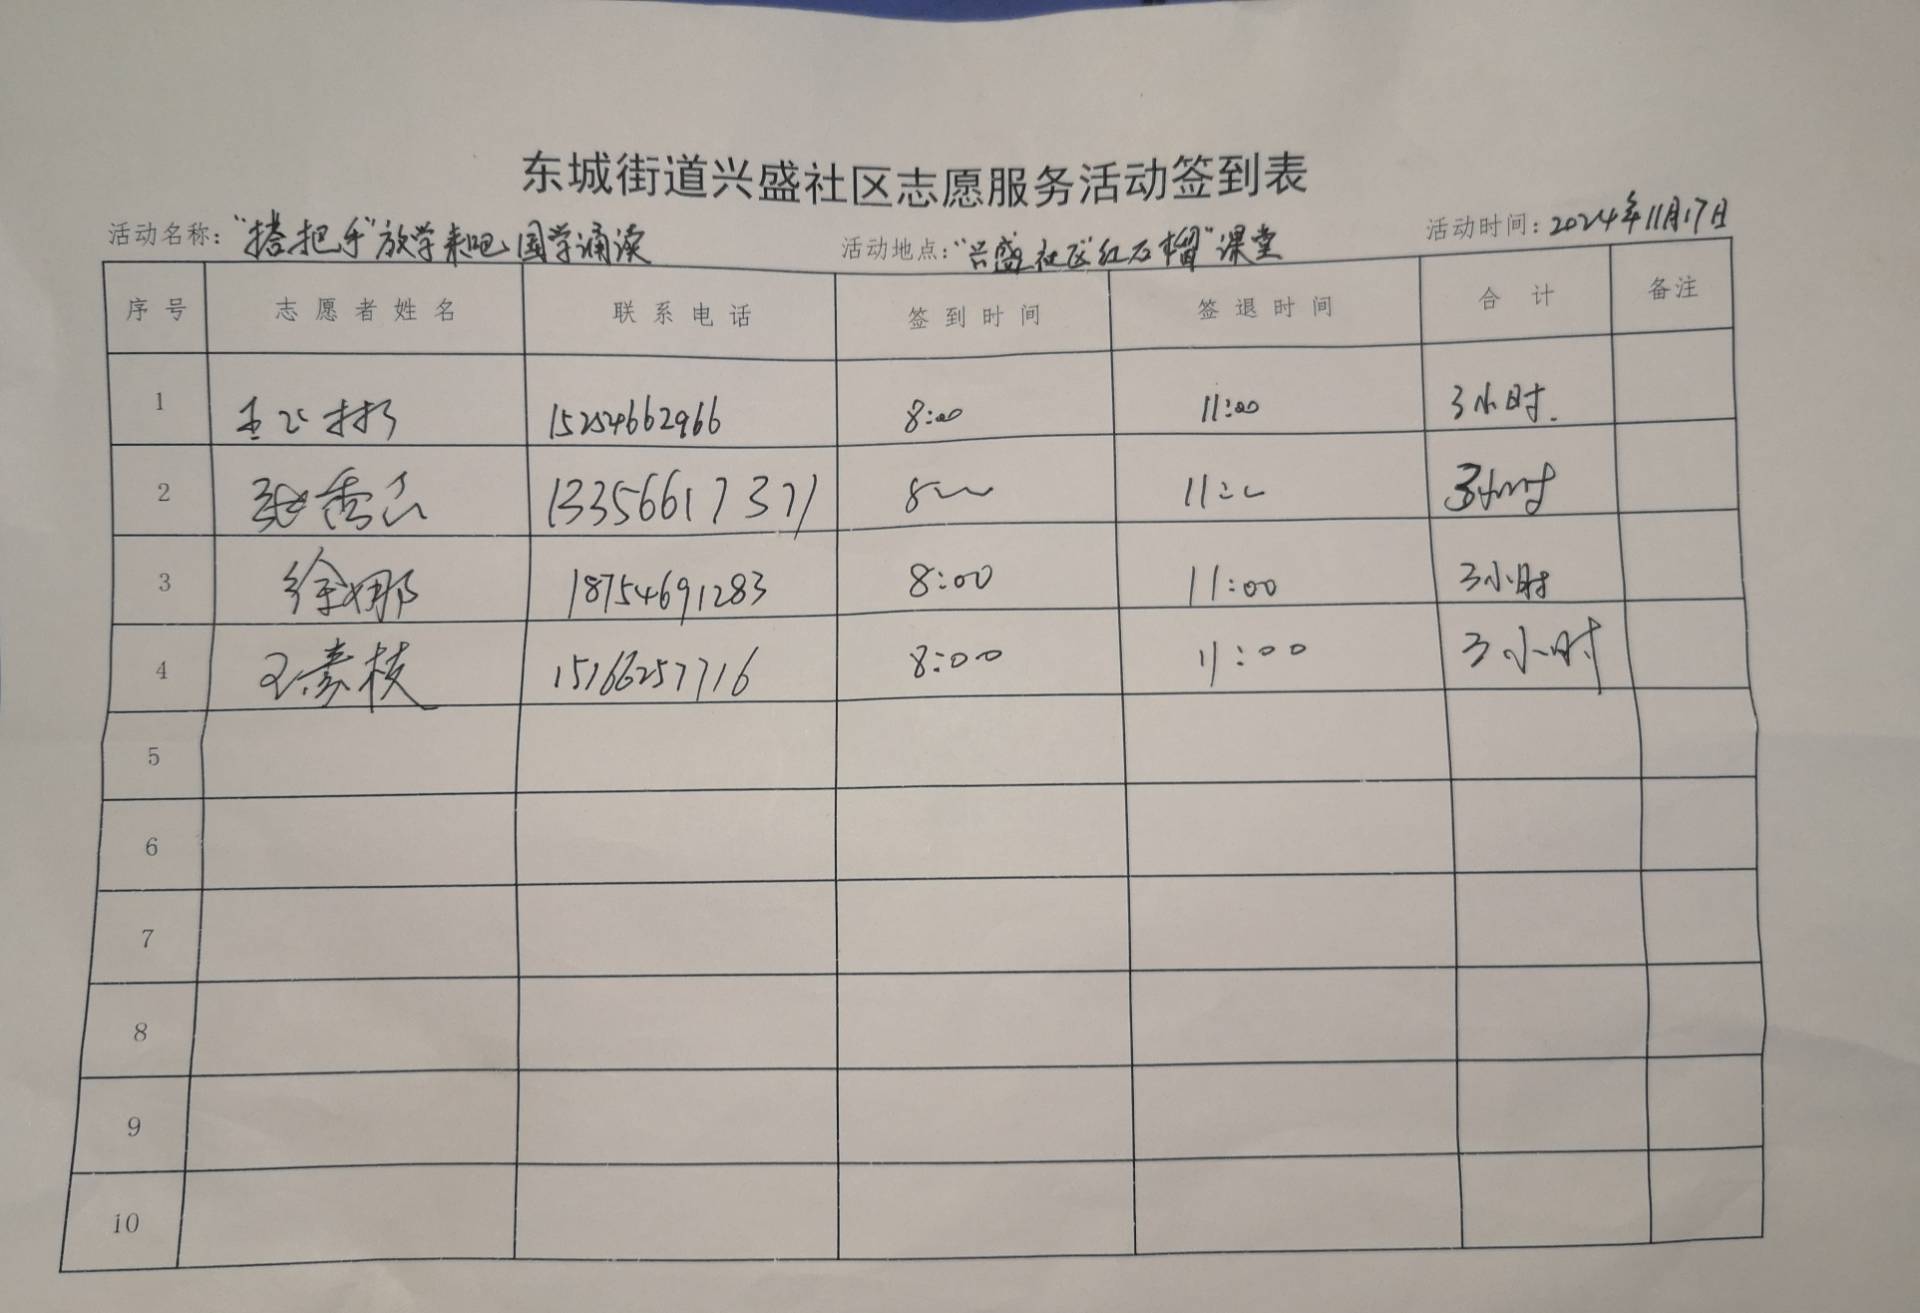 东城街道兴盛社区志愿服务活动签到表
活动名称：“搭把手”放学来吧、国学诵读 活动地点：“兴盛社区“红石榴”课堂 活动时间：2024年11月17日
序号 志愿者姓名 联系电话 签到时间 签退时间 合计 备注
1 15254662966 8:00 11:00 3小时.
2 张秀 13356617371 8 11: 3小时
3 徐娜 18754691283 8:00 11:00 3小时
4 王素枝 15166257716 8:00 11:00 3小时
5
6
7
8
9
10